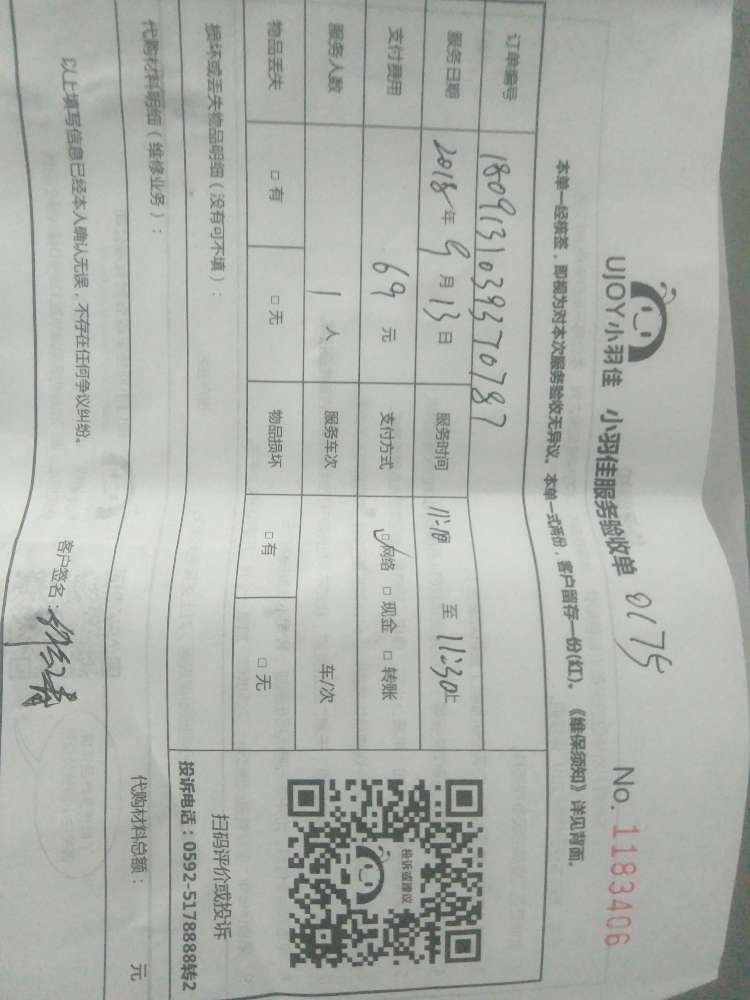 UJOY小羽佳 小羽佳服务验收单 0175 No. 1183406
本单一经核签，即视为对本次服务验收无异议。本单一式两份，客户留存一份(红)。《维保须知》详见背面。
订单编号 1809131039370787
服务日期 2018年9月13日 服务时间 至 11:30止
支付费用 69元 支付方式 □网络 □现金 □转账
服务人数 1人 服务车次 车/次
物品丢失 □有 □无 物品损坏 □有 □无
投诉或建议
扫码评价或投诉
投诉电话：0592-5178888转2
损坏或丢失物品明细（没有可不填）：
代购材料明细（维修业务）： 代购材料总额： 元
以上填写信息已经本人确认无误，不存在任何争议纠纷。 客户签名：